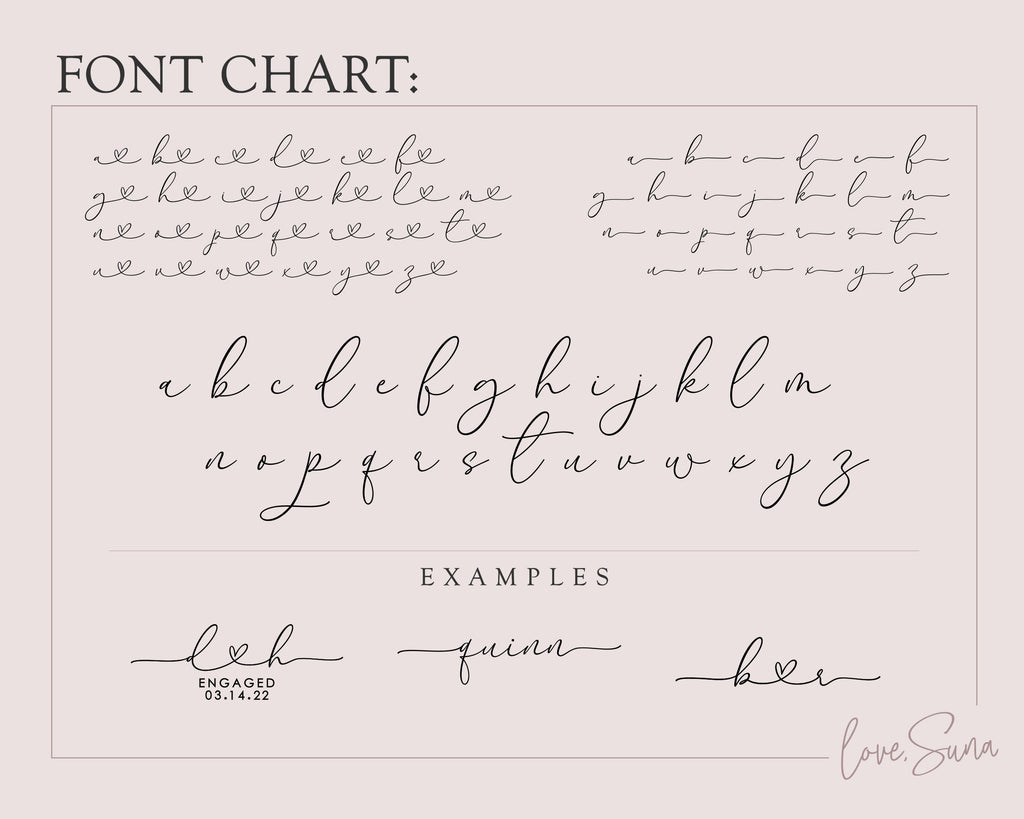 FONT CHART:
a♡ b♡ c♡ d♡ e♡ f♡
g♡ h♡ i♡ j♡ k♡ l♡ m♡
n♡ o♡ p♡ q♡ r♡ s♡ t♡
u♡ v♡ w♡ x♡ y♡ z♡
a b c d e f
g h i j k l m
n o p q r s t
u v w x y z
a b c d e f g h i j k l m
n o p q r s t u v w x y z
EXAMPLES
d♡h
ENGAGED
03.14.22
quinn
b♡r
love, Suna